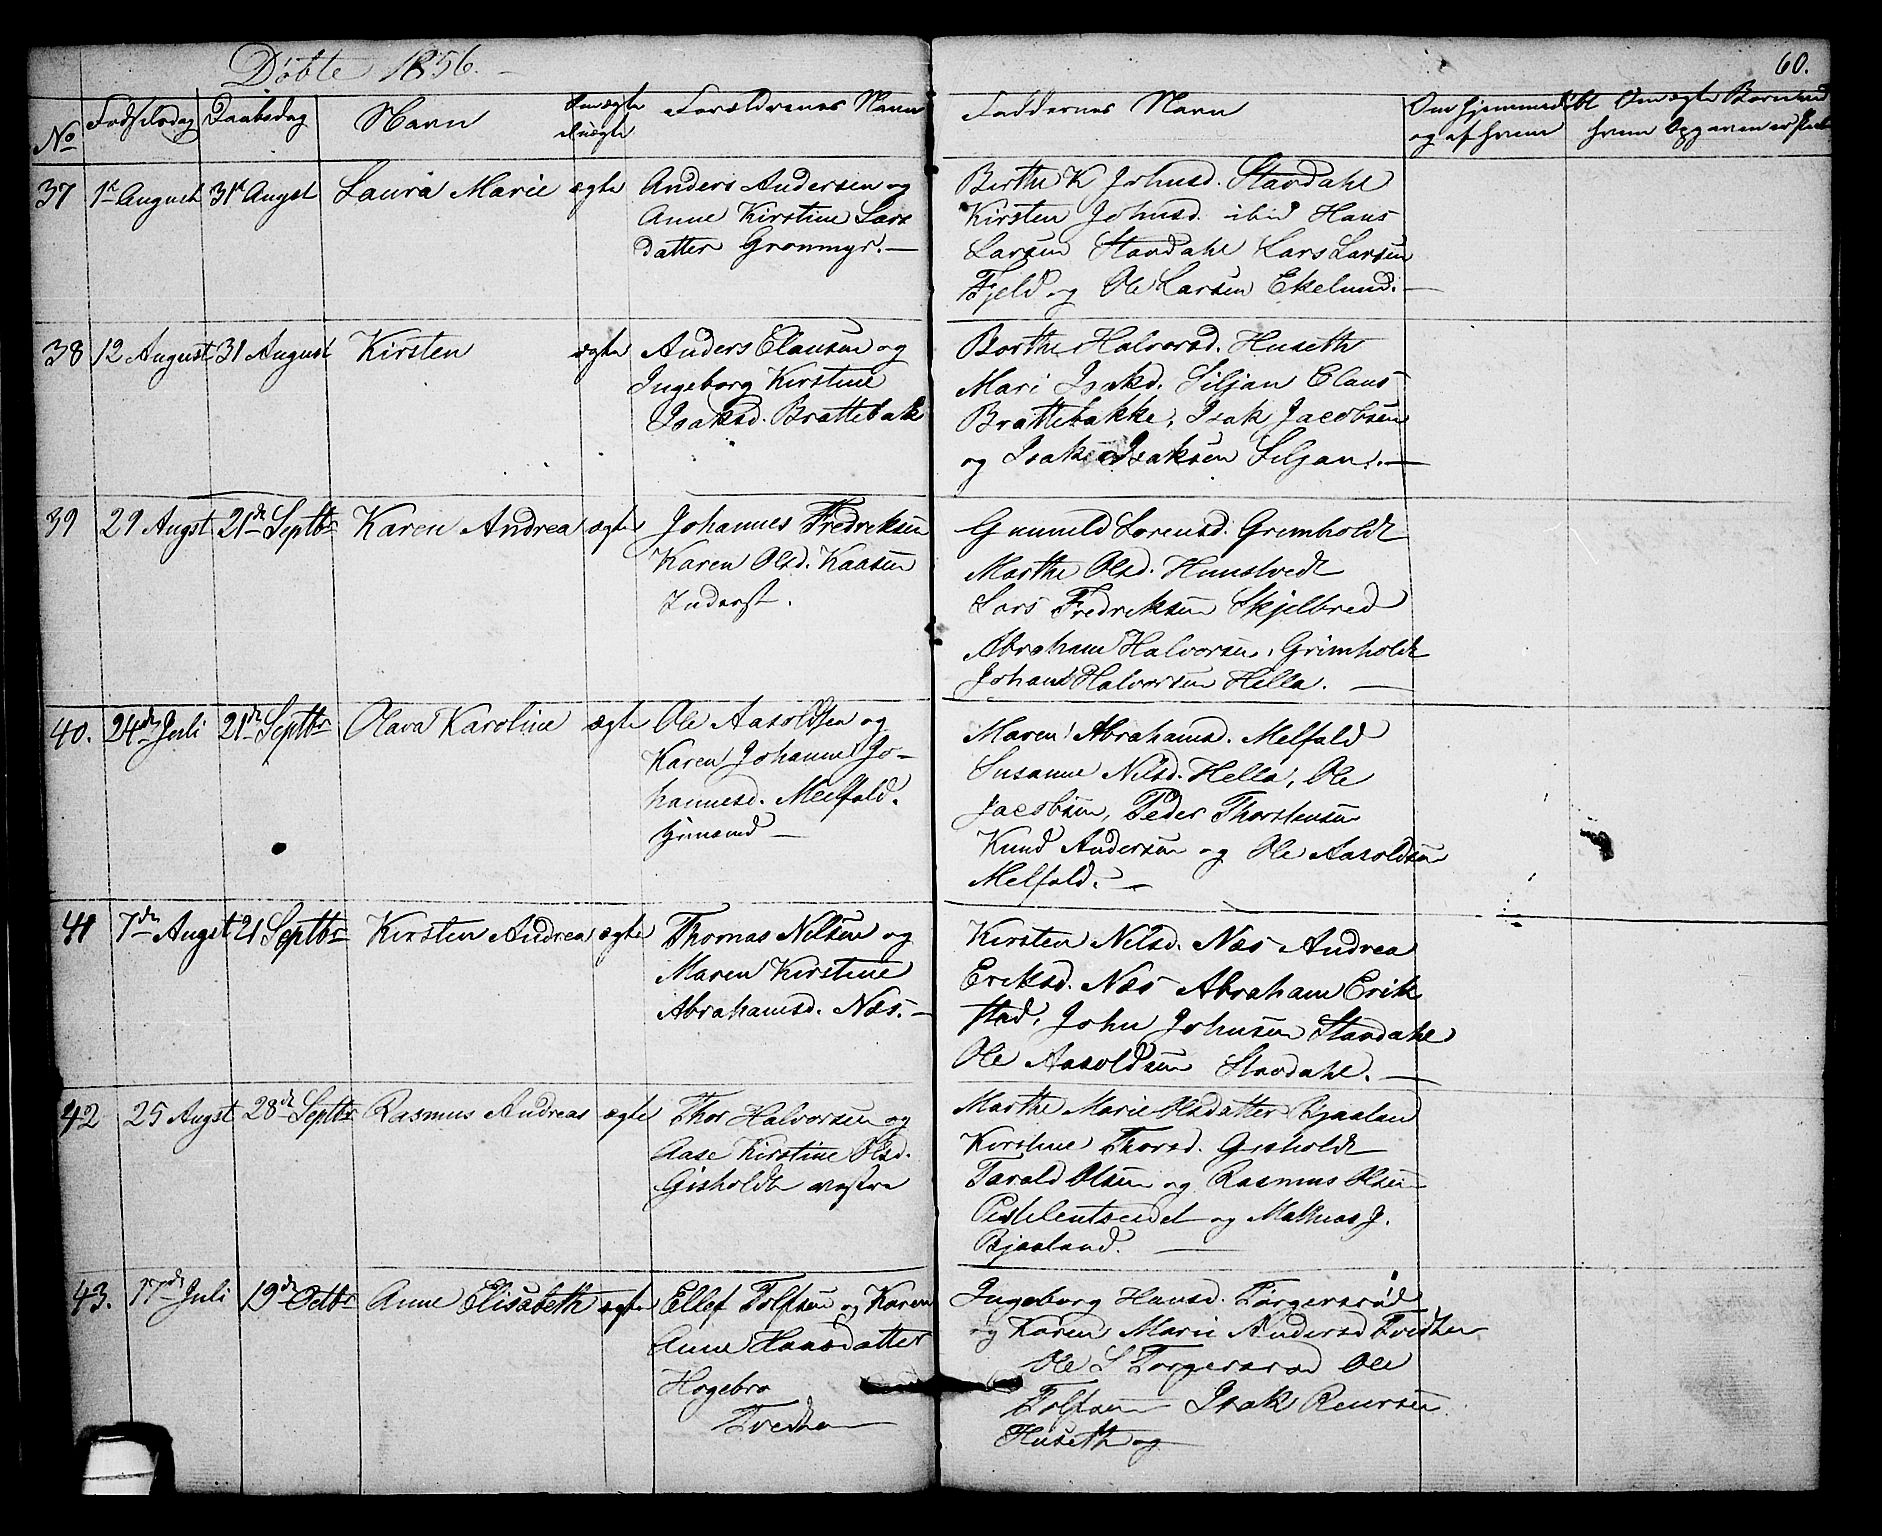 Døbte 1856.
60.
No Fødselsdag Daabsdag Navn Om ægte el uægte Forældrenes Navn Faddernes Navn Om hjemmedøbt og af hvem Om ægte Barn
37 1st August 31st Augst Laura Marie ægte Anders Andersen og
Anne Kirstine Lars
datter Grønmyr. —
Birthe K Johnsd. Stavdahl
Kirsten Johnsd. ibid Hans
Larsen Stavdahl Lars Larsen
Fjeld og Ole Larsen Ekelund. —
38 12 August 31 August Kirsten ægte Anders Clausen og
Ingeborg Kirstine
Isaksd. Brattebak
Borthe Halvorsd. Huseth
Mari Isakd. Siljan Claus
Brattebakke, Isak Jacobsen
og Isak Isaksen Siljan. —
39 29 Augst 21de Septbr Karen Andrea ægte Johannes Fredriksen
Karen Olsd. Kaasen
Inderst.
Gunnild Sorensd. Grimholdt
Marthe Olsd. Hunstvedt
Lars Fredriksen Skjelbred
Abraham Halvorsen, Grimholdt
Johan Halvorsen Hella. —
40. 24de Juli 21de Septbr Olava Karoline ægte Ole Aaroldsen og
Karen Johanne Jo-
hannesd. Melfald.
Huusmd —
Maren Abrahamsd. Melfald
Susanne Nilsd. Hella, Ole
Jacobsen, Peder Thorstensen
Knud Andersen og Ole Aaroldsen
Melfald. —
41 7de Augst 21 Septbr Kirsten Andrea ægte Thomas Nilsen og
Maren Kirstine
Abrahamsd. Næs. —
Kirsten Nilsd. Næs Andrea
Eriksd. Næs Abraham Erik
stad, John Johnsen Stavdahl
Ole Aaroldsen Stavdahl. —
42 25 Augst 28de Septbr Rasmus Andreas ægte Thor Halvorsen og
Aase Kirstine Olsd.
Gisholdt vestre
Marthe Marie Olsdatter Bjaalan
Kirstine Thorsd. Gisholdt
Tarald Olsen og Rasmus Olsen
og Mathias J.
Bjaaland. —
43. 17de Juli 19de Octbr Anne Elisabeth ægte Ellef Tolfsen og Karen
Anne Hansdatter
Hogebro
Tvedten
Ingeborg Hansd. Torgersrød
og Karen Marie Andersd Tvedten
Ole S Torgersrød Ole
Tolfsen Isak
Huseth og